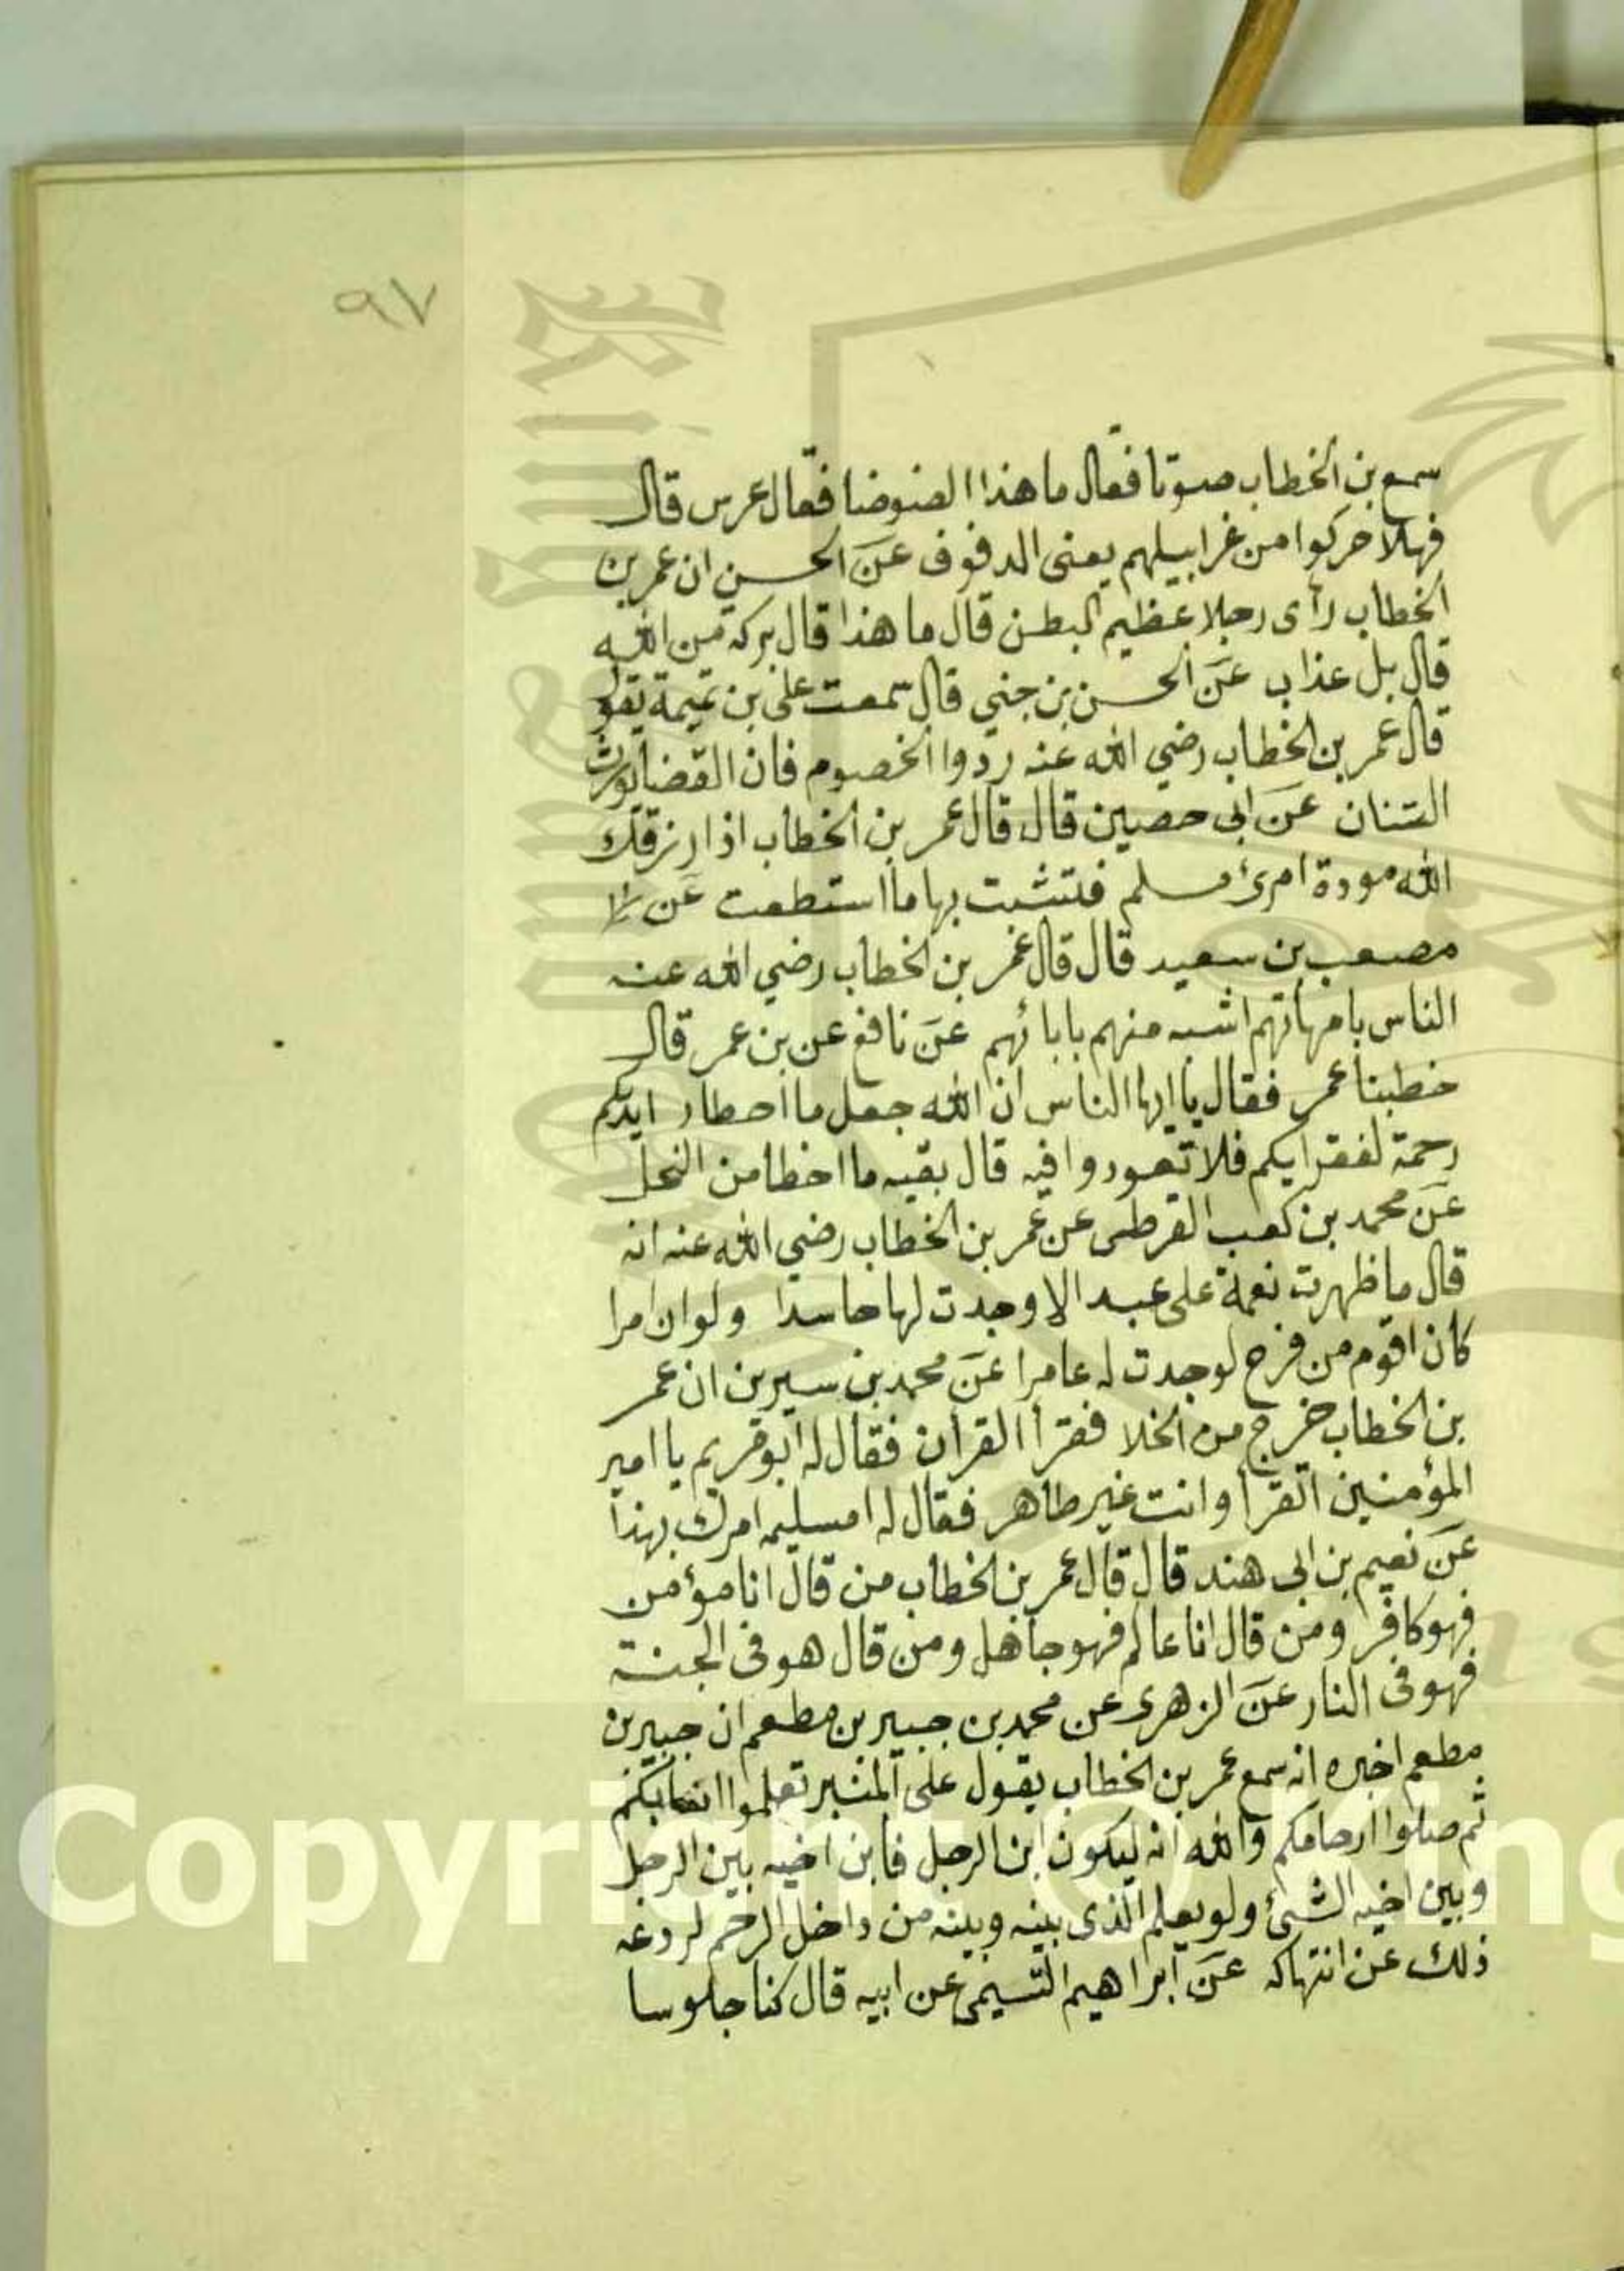 ٩٧
سمع بن الخطاب صوتا فقال ما هذا الضوضا فقال عرس قال
فهلا حركوا من غرابيلهم يعنى الدفوف عن الحسن ان عمر بن
الخطاب رآى رجلا عظيم البطن قال ما هذا قال بركة من الله
قال بل عذاب عن الحسن بن جني قال سمعت على بن تميمة يقول
قال عمر بن الخطاب رضي الله عنه ردوا الخصوم فان القضا يورث
الشنان عن ابى حصين قال قال عمر بن الخطاب اذا رزقك
الله مودة امرئ مسلم فتشبت بها ما استطعت عن
مصعب بن سعيد قال قال عمر بن الخطاب رضي الله عنه
الناس بامهاتهم اشبه منهم بابائهم عن نافع عن بن عمر قال
خطبنا عمر فقال يا ايها الناس ان الله جعل ما احطار ايديكم
رحمة لفقرايكم فلا تعودوا فيه قال بقيه ما اخطا من النخل
عن محمد بن كعب القرظى عن عمر بن الخطاب رضي الله عنه انه
قال ما ظهرت نعمة على عبد الا وجدت لها حاسدا ولو ان امرا
كان اقوم من فرح لوجدت له عامرا عن محمد بن سيرين ان عمر
بن الخطاب خرج من الخلا فقرأ القرأن فقال له ابو قريم يا امير
المؤمنين اتقرأ وانت غير طاهر فقال له امسليمه امرك بهذا
عن نعيم بن ابى هند قال قال عمر بن الخطاب من قال انا مؤمن
فهو كافر ومن قال انا عالم فهو جاهل ومن قال هو فى الجنة
فهو فى النار عن الزهرى عن محمد بن جبير بن مطعم ان جبير بن
مطعم اخبره انه سمع عمر بن الخطاب يقول على المنبر تعلموا انسابكم
ثم صلوا ارحامكم والله انه ليكون ابن الرجل فابن اخيه بين الرجل
وبين اخيه الشئ ولو يعلم الذى بينه وبينه من داخل الرحم لردعه
ذلك عن انتهاكه عن ابراهيم التيمى عن ابيه قال كنا جلوسا
Copyright © King